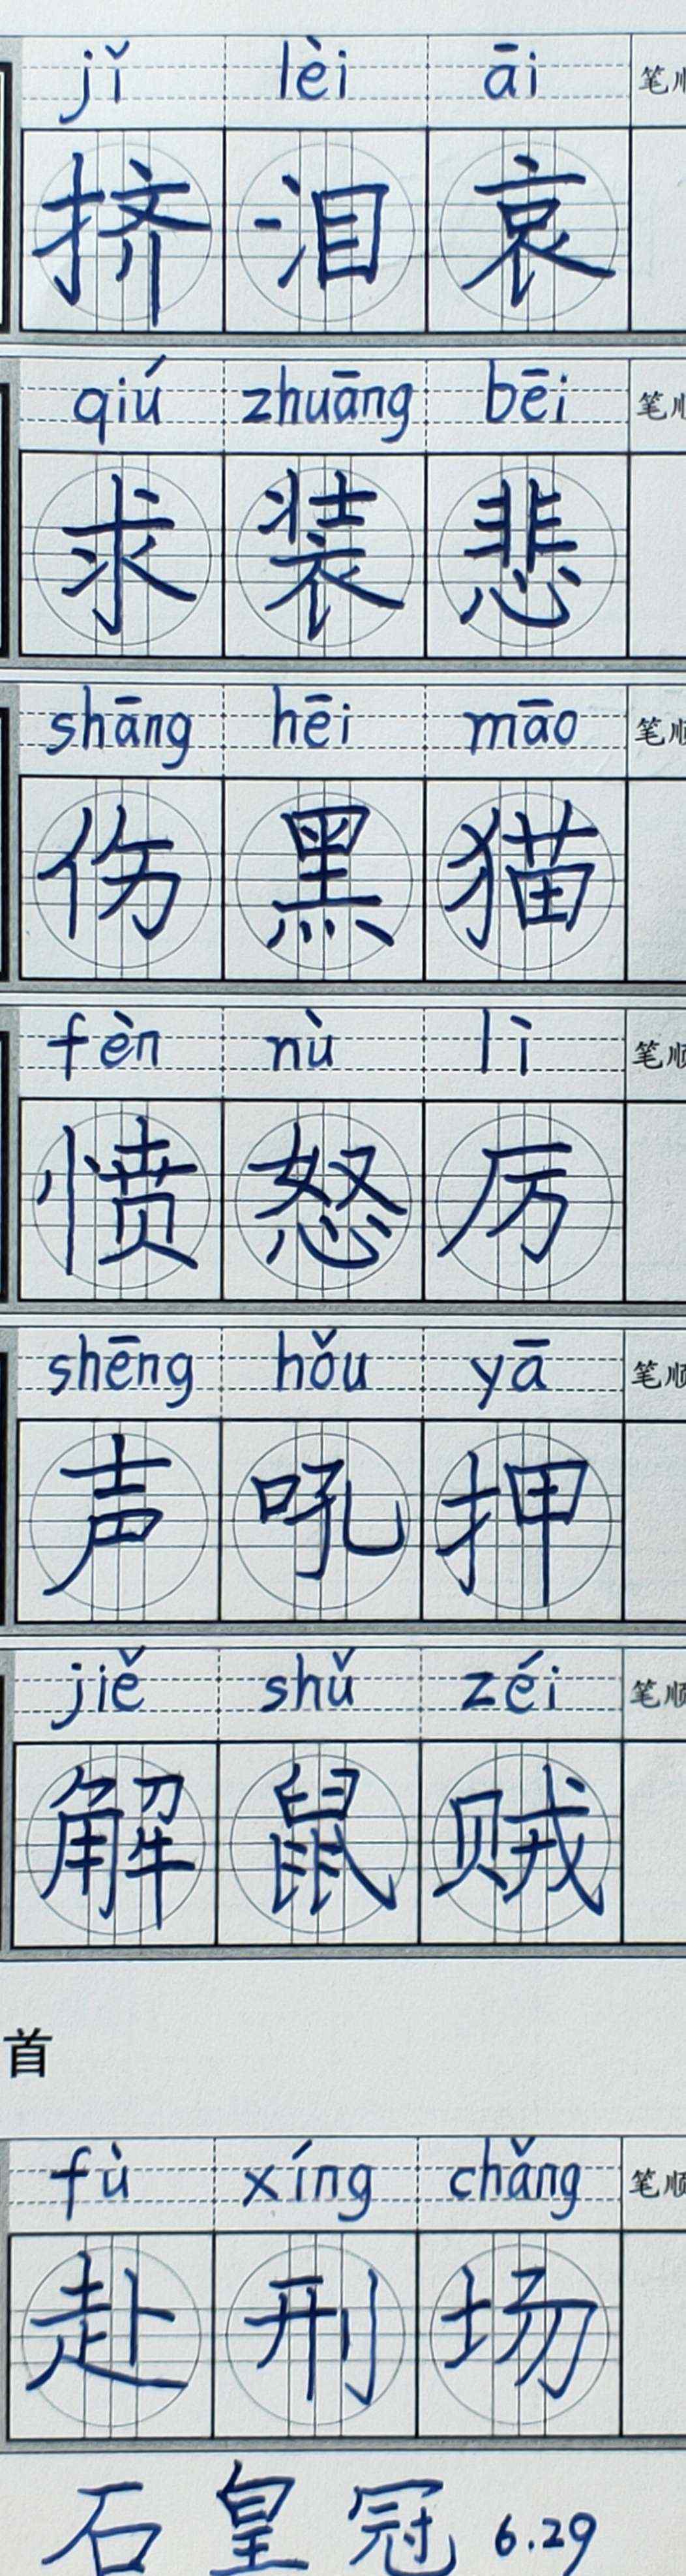 jǐ lèi āi 笔顺
挤 泪 哀
qiú zhuāng bēi 笔顺
求 装 悲
shāng hēi māo 笔顺
伤 黑 猫
fèn nù lì 笔顺
愤 怒 厉
shēng hǒu yā 笔顺
声 吼 押
jiě shǔ zéi 笔顺
解 鼠 贼
首
fù xíng chǎng 笔顺
赴 刑 场
石 皇 冠 6.29